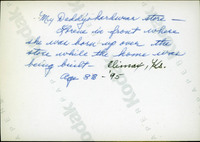 My Daddy's hardware store —
Irene in front where
she was born up over the
store while the home was
being built — Climax, Ks.
Age 88 - '95
Kodak